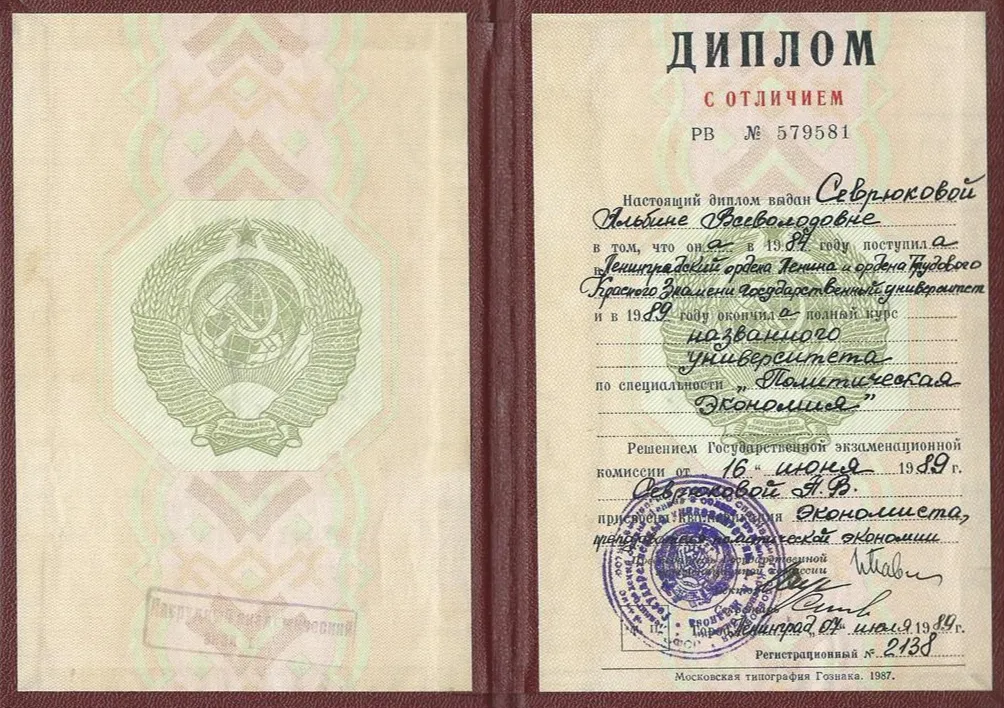 ДИПЛОМ
С ОТЛИЧИЕМ
РВ № 579581
Настоящий диплом выдан Севрюковой
Альбине Всеволодовне
в том, что она в 1987 году поступила
в Ленинградский ордена Ленина и ордена Трудового
Красного Знамени государственный университет
и в 1989 году окончила полный курс
названного
университета
по специальности „Политическая
Экономия"
Решением Государственной экзаменационной
комиссии от 16 " июня 1989 г.
Севрюковой А. В.
присвоена квалификация экономиста,
преподавателя политической экономии
Председатель Государственной
экзаменационной комиссии
Ректор
Секретарь
Город Ленинград „07" июля 1989 г.
Регистрационный № 2138
Московская типография Гознака. 1987.